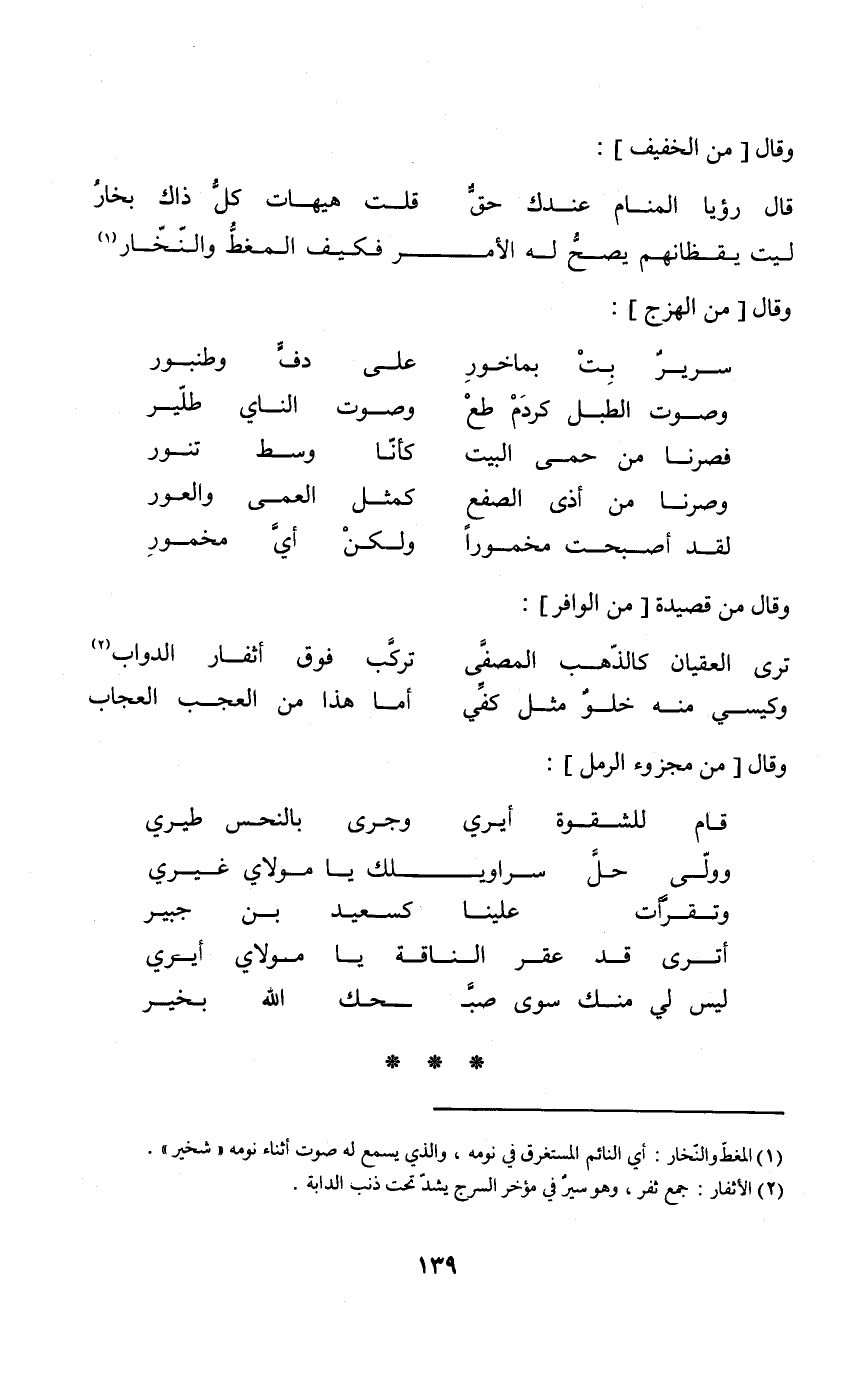 وقال [ من الخفيف ] :
قال رؤيا المنام عندك حقٌّ قلت هيهات كلُّ ذاك بخارُ
ليت يقظانهم يصحُّ له الأمر فكيف المغطُّ والنّخّار(١)
وقال [ من الهزج ] :
سريرٌ بِتْ بماخورِ على دفٍّ وطنبور
وصوت الطبل كردَمْ طعْ وصوت الناي طلّير
فصرنا من حمى البيت كأنّا وسط تنور
وصرنا من أذى الصفع كمثل العمى والعور
لقد أصبحت مخموراً ولكنْ أيَّ مخمورِ
وقال من قصيدة [ من الوافر ] :
ترى العقيان كالذّهب المصفَّى تركَّب فوق أثفار الدواب(٢)
وكيسي منه خلوٌ مثل كفِّي أما هذا من العجب العجاب
وقال [ من مجزوء الرمل ] :
قام للشقوة أيري وجرى بالنحس طيري
وولّى حلَّ سراويلك يا مولاي غيري
وتقرَّأت علينا كسعيد بن جبير
أترى قد عقر الناقة يا مولاي أيري
ليس لي منك سوى صبَّحك الله بخير
* * *
(١) المغطّ والنّخار : أي النائم المستغرق في نومه ، والذي يسمع له صوت أثناء نومه « شخير » .
(٢) الأثفار : جمع ثفر ، وهو سيرٌ في مؤخر السرج يشدّ تحت ذنب الدابة .
١٣٩